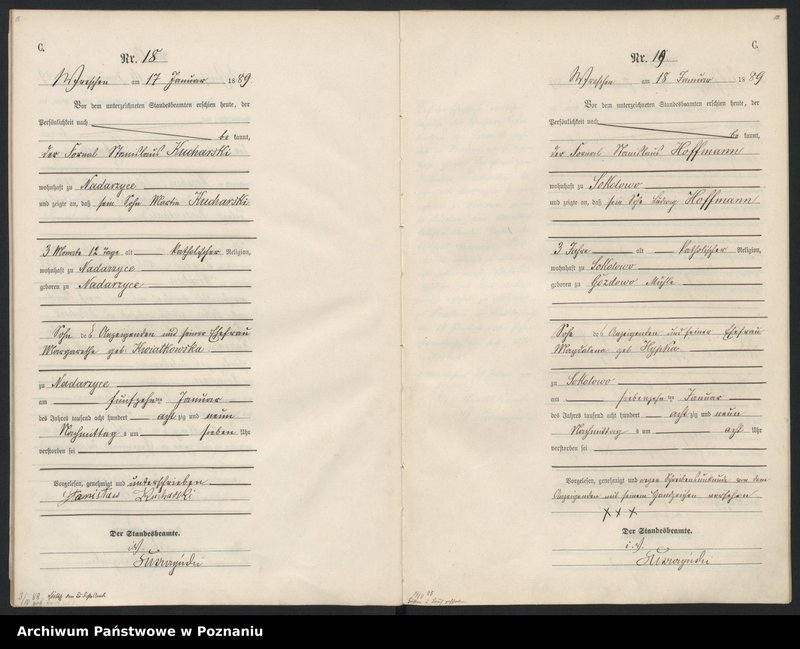 C.
Nr. 18
Wreschen am 17 Januar 1889
Vor dem unterzeichneten Standesbeamten erschien heute, der
Persönlichkeit nach
be kannt,
der Fornal Stanislaus Kucharski
wohnhaft zu Nadarzyce
und zeigte an, daß sein Sohn Martin Kucharski
3 Monate 12 Tage alt katholischer Religion,
wohnhaft zu Nadarzyce
geboren zu Nadarzyce
Sohn des Anzeigenden und seiner Ehefrau
Margarethe geb Kwiatkowska
zu Nadarzyce
am fünfzehnten Januar
des Jahres tausend acht hundert acht zig und neun
Nachmittag s um sieben Uhr
verstorben sei
Vorgelesen, genehmigt und unterschrieben
Stanisław Kucharski
Der Standesbeamte.
i.V.
C.
Nr. 19
Wreschen am 18 Januar 1889
Vor dem unterzeichneten Standesbeamten erschien heute, der
Persönlichkeit nach
be kannt,
der Fornal Stanislaus Hoffmann
wohnhaft zu Sokolowo
und zeigte an, daß sein Sohn Ludwig Hoffmann
3 Jahre alt katholischer Religion,
wohnhaft zu Sokolowo
geboren zu Gozdowo Mühle
Sohn des Anzeigenden und seiner Ehefrau
Magdalena geb Hypka
zu Sokolowo
am siebenzehnten Januar
des Jahres tausend acht hundert acht zig und neun
Nachmittag s um acht Uhr
verstorben sei
Vorgelesen, genehmigt und wegen Schreibensunkunde von dem
Anzeigenden mit seinem Handzeichen versehen
xxx
Der Standesbeamte.
i.V.
Archiwum Państwowe w Poznaniu